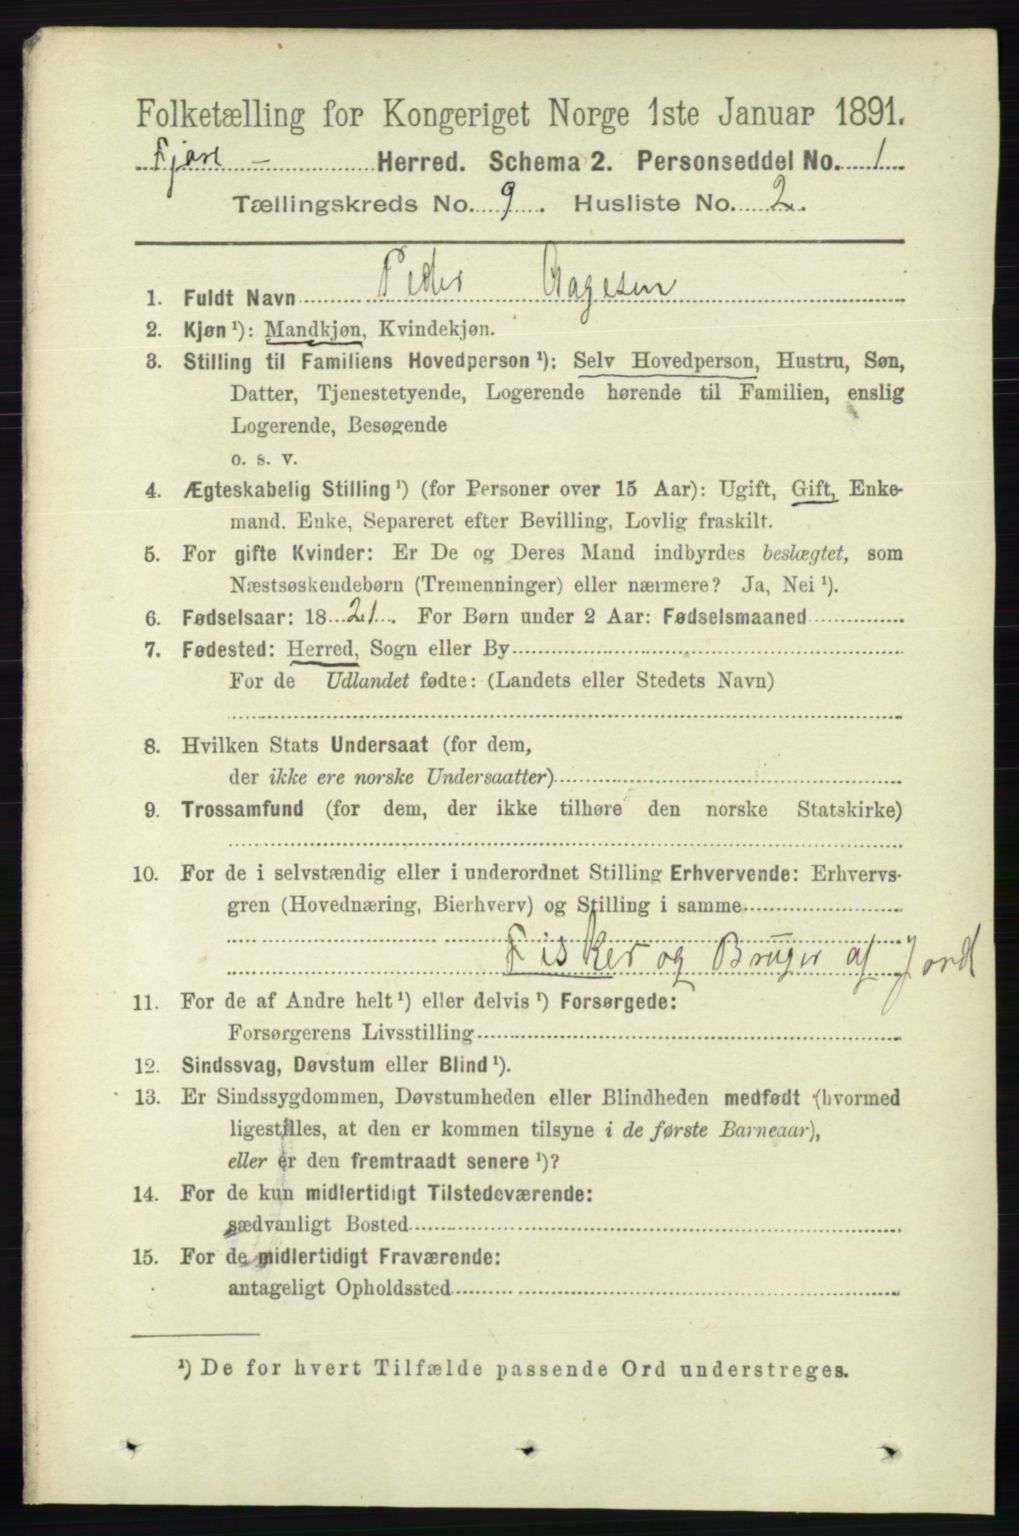 Folketælling for Kongeriget Norge 1ste Januar 1891.
Fjære Herred. Schema 2. Personseddel No. 1
Tællingskreds No. 9. Husliste No. 2.
1. Fuldt Navn Peder Aagesen
2. Kjøn ¹): Mandkjøn, Kvindekjøn.
3. Stilling til Familiens Hovedperson ¹): Selv Hovedperson, Hustru, Søn,
Datter, Tjenestetyende, Logerende hørende til Familien, enslig
Logerende, Besøgende
o. s. v.
4. Ægteskabelig Stilling ¹) (for Personer over 15 Aar): Ugift, Gift, Enke-
mand. Enke, Separeret efter Bevilling, Lovlig fraskilt.
5. For gifte Kvinder: Er De og Deres Mand indbyrdes beslægtet, som
Næstsøskendebørn (Tremenninger) eller nærmere? Ja, Nei ¹).
6. Fødselsaar: 1821. For Børn under 2 Aar: Fødselsmaaned
7. Fødested: Herred, Sogn eller By
For de Udlandet fødte: (Landets eller Stedets Navn)
8. Hvilken Stats Undersaat (for dem,
der ikke ere norske Undersaatter)
9. Trossamfund (for dem, der ikke tilhøre den norske Statskirke)
10. For de i selvstændig eller i underordnet Stilling Erhvervende: Erhvervs-
gren (Hovednæring, Bierhverv) og Stilling i samme
Fisker og Bruger af Jord
11. For de af Andre helt ¹) eller delvis ¹) Forsørgede:
Forsørgerens Livsstilling
12. Sindssvag, Døvstum eller Blind ¹).
13. Er Sindssygdommen, Døvstumheden eller Blindheden medfødt (hvormed
ligestilles, at den er kommen tilsyne i de første Barneaar),
eller er den fremtraadt senere ¹)?
14. For de kun midlertidigt Tilstedeværende:
sædvanligt Bosted
15. For de midlertidigt Fraværende:
antageligt Opholdssted
¹) De for hvert Tilfælde passende Ord understreges.